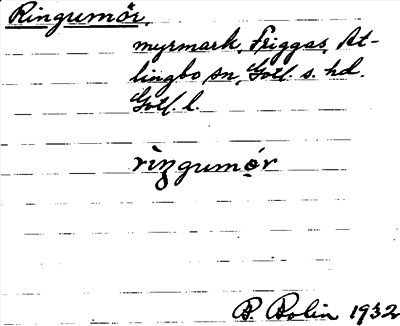 Ringumör,
myrmark, Friggas, At-
lingbo sn, Gotl. s. hd.
Gotl. l.
riŋgumǫ́r
B. Bolin 1932